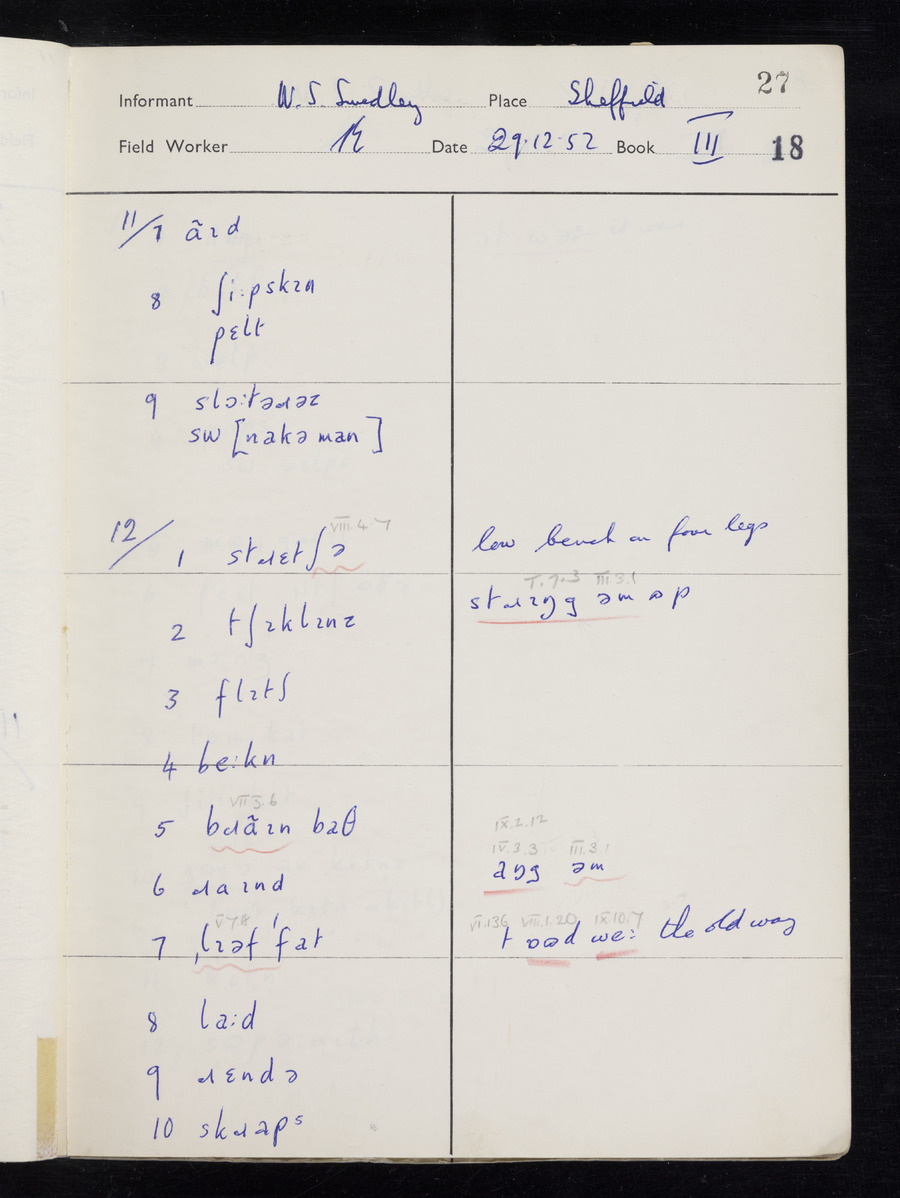 27
Informant W. S. Smedley Place Sheffield
Field Worker Date 29.12.52 Book III 18
11/7 ãɪd
8 ʃi:pskɪn
pɛlt
9 slɔ:təɹəz
sw [nakə man]
VIII.4.7
12/1 stɹɛtʃə low bench on four legs
III.3.1
stɹɪŋg əm ɒp
2 tʃɪklɪnz
3 flɪtʃ
4 be:kn
VII.3.6
5 bɹãɪn baθ
IX.2.12
IV.3.3 III.3.1
6 ɹaɪnd aŋg əm
V.7.8 VIII.1.20 IX.10.7
7 ˌlɪəf ˈfat t ɒəd we: the old way
8 la:d
9 ɹɛndə
10 skɹaps